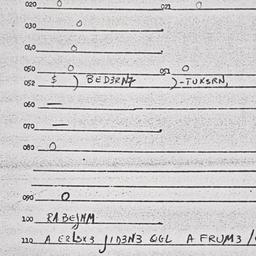 020 0 021 0
030 0
040 0
050 0 051 0
052 $ ) BED3RN7 )-TUKSRN,
060 —
070 —
080 0
090 0
100 RABEJNM
110 A JID3N3 QGL A FRUM3